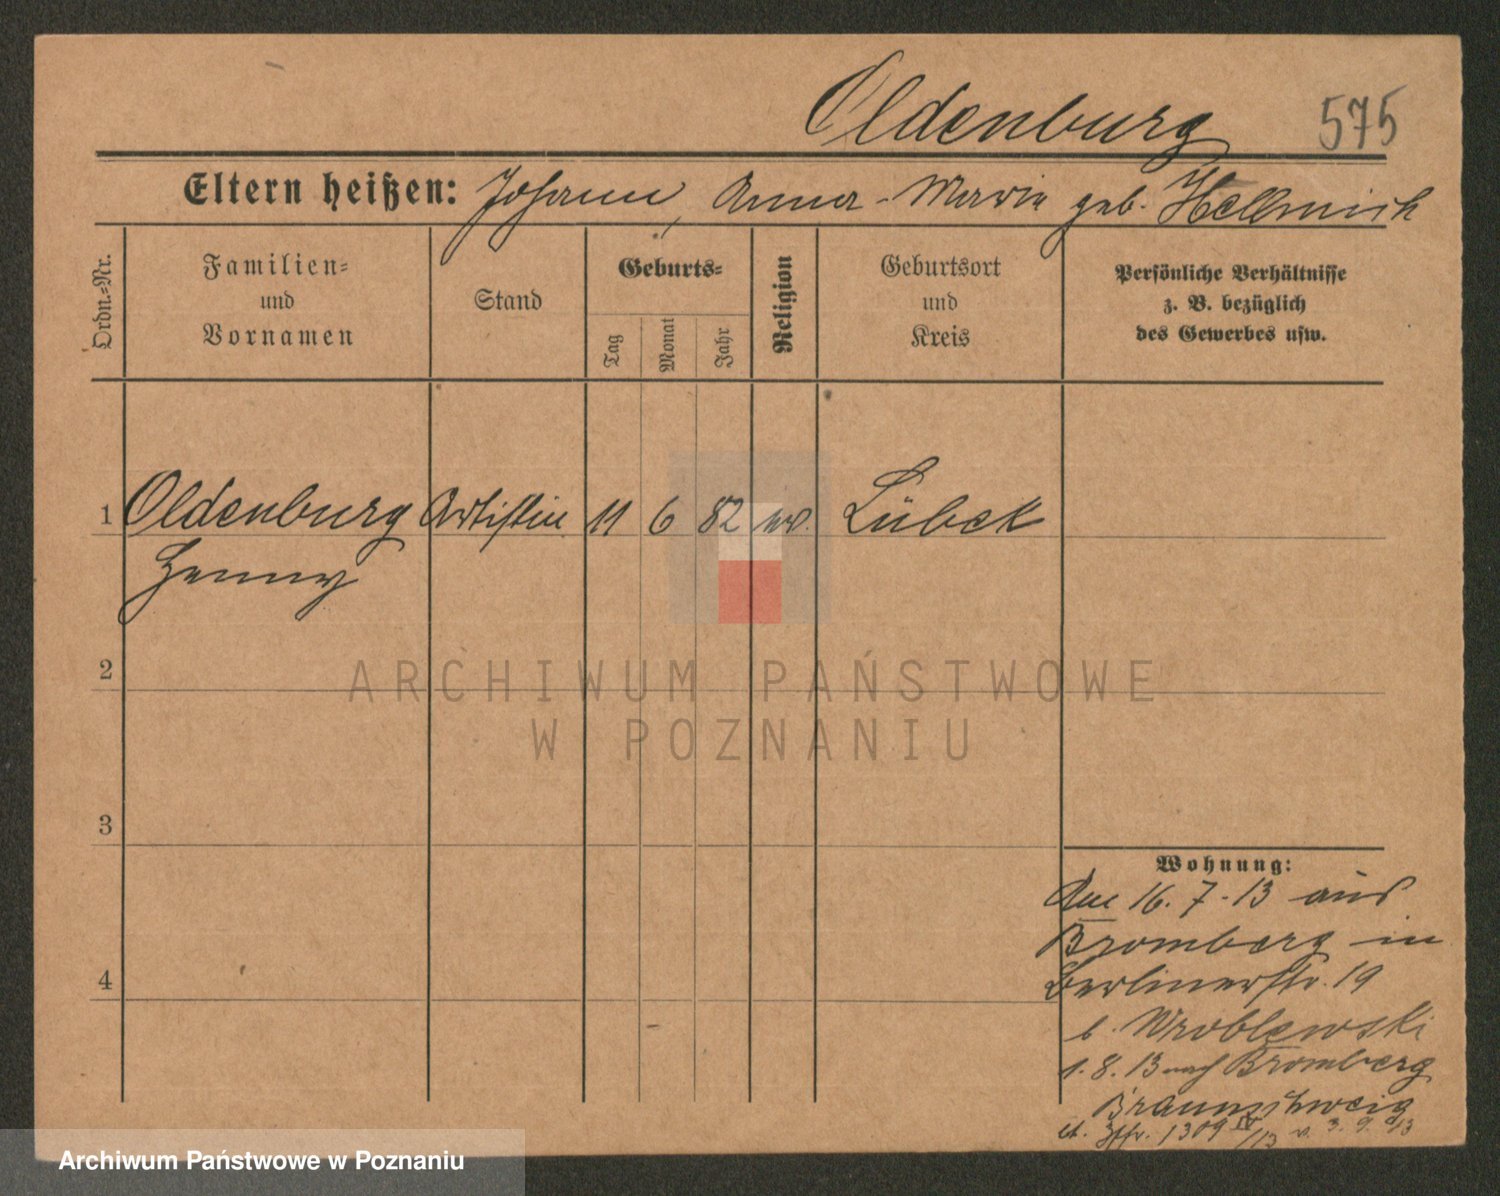 Oldenburg 575
Eltern heißen: Johann, Anna-Marie geb. Hellmich
Ordn.-Nr.
Familien- und Vornamen
Stand
Geburts-
Tag
Monat
Jahr
Religion
Geburtsort und Kreis
Persönliche Verhältnisse
z. B. bezüglich
des Gewerbes usw.
1 Oldenburg Artistin 11 6 82 ev. Lübek
Jenny
2
ARCHIWUM PAŃSTWOWE
W POZNANIU
3
Wohnung:
Am 16. 7. 13 aus
Bromberg in
4 Berlinerstr. 19
b. Wroblewski
1. 8. 13 nach Bromberg
Braunschweig
1309 IV/13 v. 3. 9. 13
Archiwum Państwowe w Poznaniu